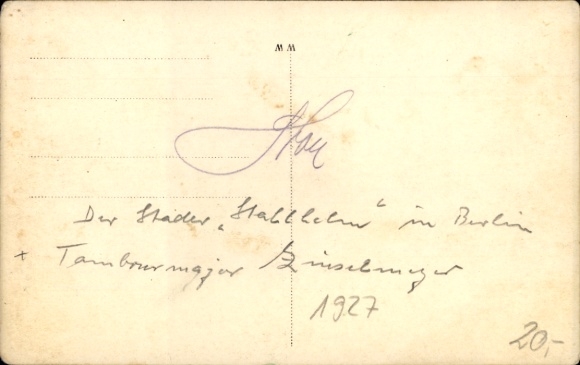 WW
Der Stader „Stahlhelm“ in Berlin
x Tambourmajor
1927
20,-